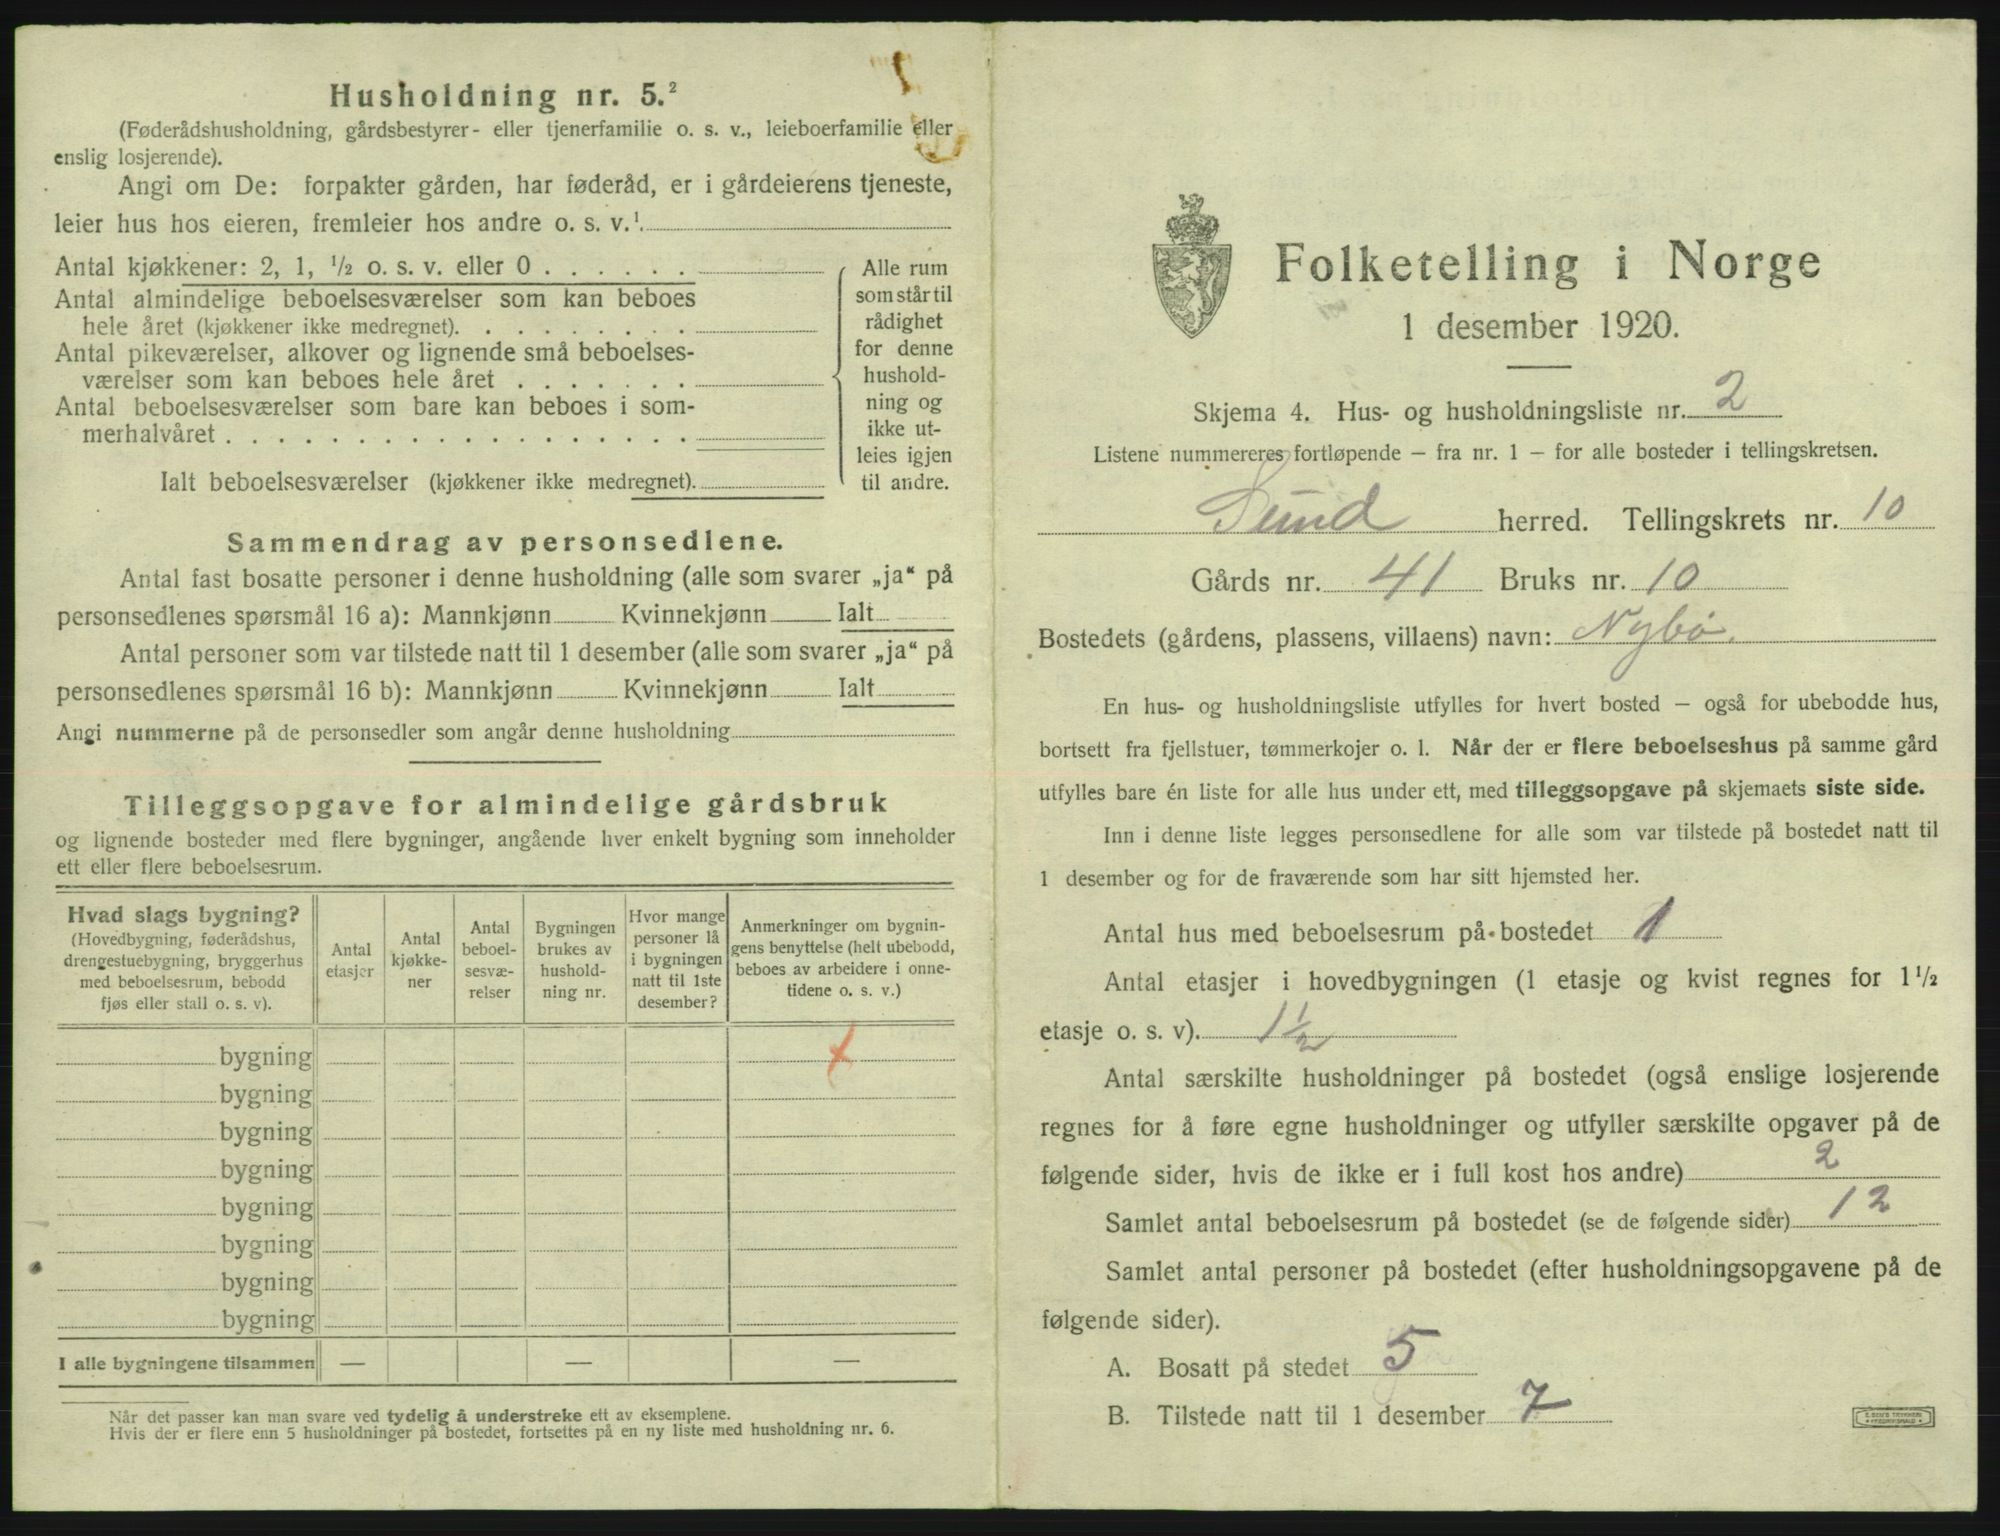 Husholdning nr. 5.²
(Føderådshusholdning, gårdsbestyrer- eller tjenerfamilie o. s. v., leieboerfamilie eller
enslig losjerende).
Angi om De: forpakter gården, har føderåd, er i gårdeierens tjeneste,
leier hus hos eieren, fremleier hos andre o. s. v.¹.
Antal kjøkkener: 2, 1, ½ o. s. v. eller 0 . . . . . .
Antal almindelige beboelsesværelser som kan beboes
hele året (kjøkkener ikke medregnet). . . . . . . . .
Antal pikeværelser, alkover og lignende små beboelses-
værelser som kan beboes hele året . . . . . . .
Antal beboelsesværelser som bare kan beboes i som-
merhalvåret . . . . . . . . . . . . . . . . . .
Ialt beboelsesværelser (kjøkkener ikke medregnet).
Alle rum
som står til
rådighet
for denne
hushold-
ning og
ikke ut-
leies igjen
til andre.
Sammendrag av personsedlene.
Antal fast bosatte personer i denne husholdning (alle som svarer „ja“ på
personsedlenes spørsmål 16 a): Mannkjønn Kvinnekjønn Ialt
Antal personer som var tilstede natt til 1 desember (alle som svarer „ja“ på
personsedlenes spørsmål 16 b): Mannkjønn Kvinnekjønn Ialt
Angi nummerne på de personsedler som angår denne husholdning
Tilleggsopgave for almindelige gårdsbruk
og lignende bosteder med flere bygninger, angående hver enkelt bygning som inneholder
ett eller flere beboelsesrum.
Hvad slags bygning?
(Hovedbygning, føderådshus,
drengestuebygning, bryggerhus
med beboelsesrum, bebodd
fjøs eller stall o. s. v).
Antal
etasjer
Antal
kjøkke-
ner
Antal
beboel-
sesvæ-
relser
Bygningen
brukes av
hushold-
ning nr.
Hvor mange
personer lå
i bygningen
natt til 1ste
desember?
Anmerkninger om bygnin-
gens benyttelse (helt ubebodd,
beboes av arbeidere i onne-
tidene o. s. v.)
bygning
bygning
bygning
bygning
bygning
bygning
bygning
bygning
I alle bygningene tilsammen — — —
Når det passer kan man svare ved tydelig å understreke ett av eksemplene.
Hvis der er flere enn 5 husholdninger på bostedet, fortsettes på en ny liste med husholdning nr. 6.
Folketelling i Norge
1 desember 1920.
Skjema 4. Hus- og husholdningsliste nr. 2
Listene nummereres fortløpende — fra nr. 1 — for alle bosteder i tellingskretsen.
Sund herred. Tellingskrets nr. 10
Gårds nr. 41 Bruks nr. 10
Bostedets (gårdens, plassens, villaens) navn: Nybø.
En hus- og husholdningsliste utfylles for hvert bosted — også for ubebodde hus,
bortsett fra fjellstuer, tømmerkojer o. l. Når der er flere beboelseshus på samme gård
utfylles bare én liste for alle hus under ett, med tilleggsopgave på skjemaets siste side.
Inn i denne liste legges personsedlene for alle som var tilstede på bostedet natt til
1 desember og for de fraværende som har sitt hjemsted her.
Antal hus med beboelsesrum på bostedet 1
Antal etasjer i hovedbygningen (1 etasje og kvist regnes for 1½
etasje o. s. v). 1½
Antal særskilte husholdninger på bostedet (også enslige losjerende
regnes for å føre egne husholdninger og utfyller særskilte opgaver på de
følgende sider, hvis de ikke er i full kost hos andre) 2
Samlet antal beboelsesrum på bostedet (se de følgende sider) 12
Samlet antal personer på bostedet (efter husholdningsopgavene på de
følgende sider).
A. Bosatt på stedet 5
B. Tilstede natt til 1 desember 7